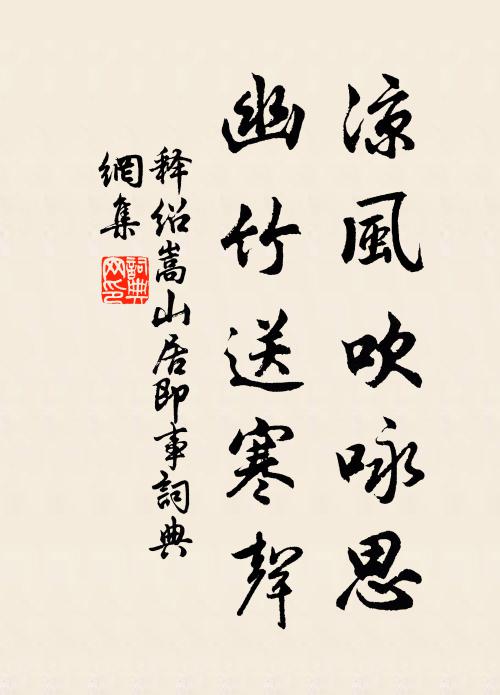 涼風吹咏思
幽竹送寒聲
释紹嵩山居即事詞典
網集
詞典網印